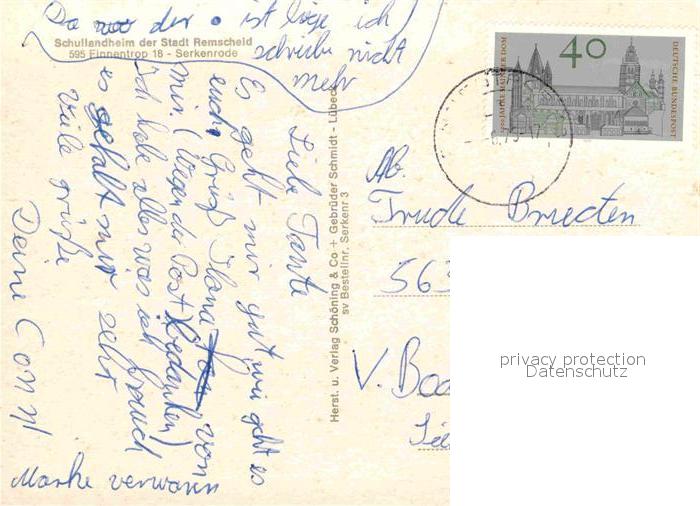 Da der • ist liege ich
schreibe nicht
mehr
Schullandheim der Stadt Remscheid
595 Finnentrop 18 - Serkenrode
Liebe Tante
Es geht mir gut wie geht es
euch. Grüß Ilona von
mir. (wegen die Post bedanken)
ich habe alles was ich brauch
es gefällt mir sehr
Viele grüße
Deine Conni
Marke verwaren
Herst. u. Verlag Schöning & Co + Gebrüder Schmidt - Lübeck
sv Bestellnr. Serkenr 3
40
DEUTSCHE BUNDESPOST
1000 JAHRE MAINZER DOM
Trude Bruecten
563
V. Boc
privacy protection
Datenschutz